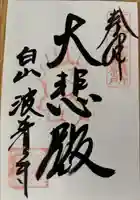 奉拝
大悲殿
白山 波着寺